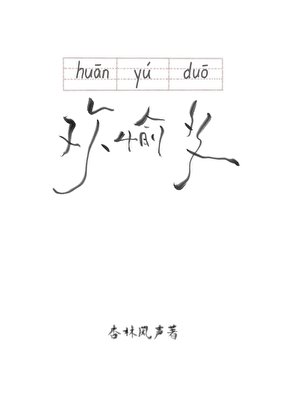 huān yú duō
欢愉多
杏林风声著